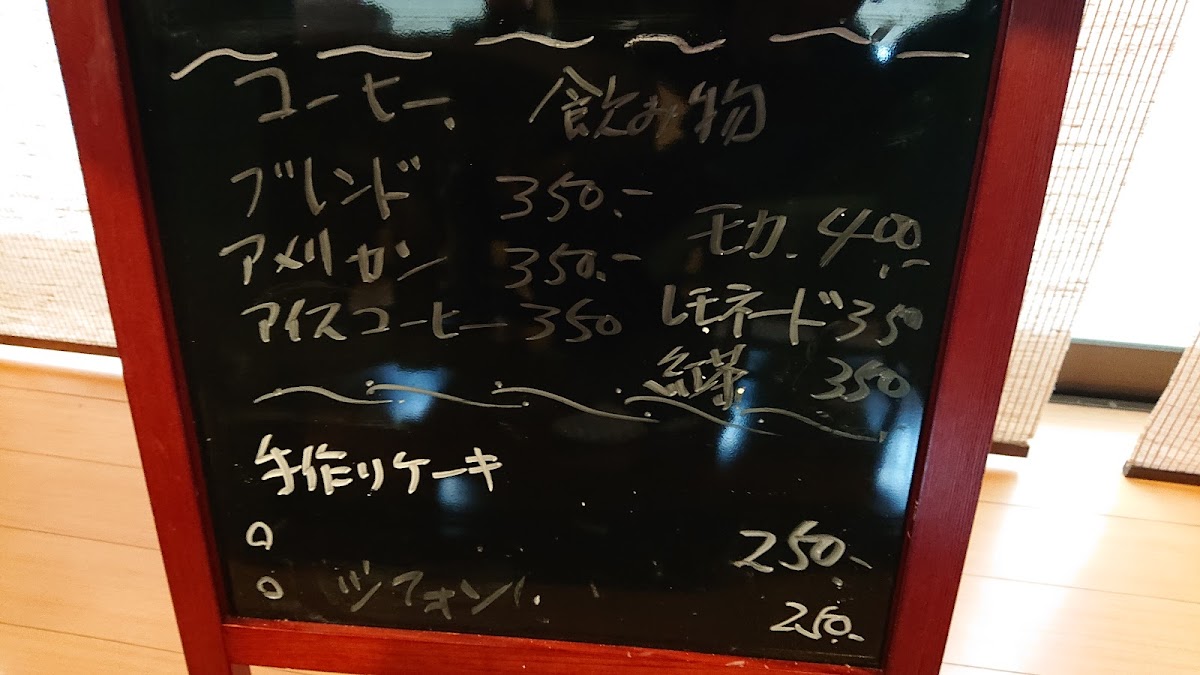 コーヒー. 飲み物
ブレンド 350.-
モカ. 400.-
アメリカン 350.-
アイスコーヒー 350
レモネード 350
紅茶 350
手作りケーキ
○ 250.-
○ シフォン 250.-